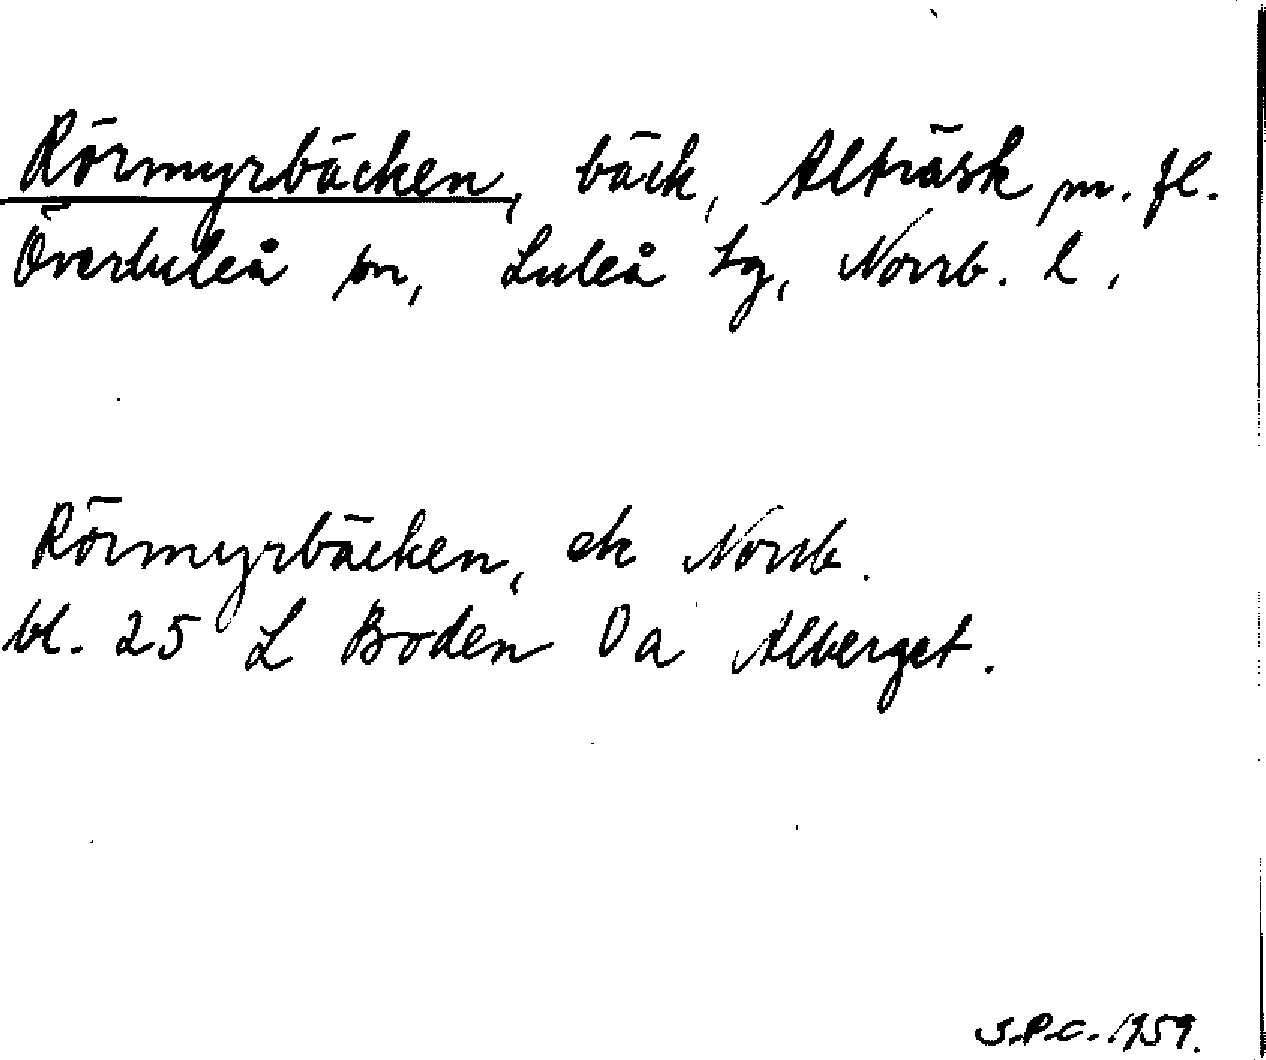 Rörmyrbäcken, bäck, Alträsk m. fl.
Överluleå sn, Luleå tg, Norrb. l.
Rörmyrbäcken, ek Norrb.
bl. 25 L Boden 0 a Alberget.
S.P.C. 1959.